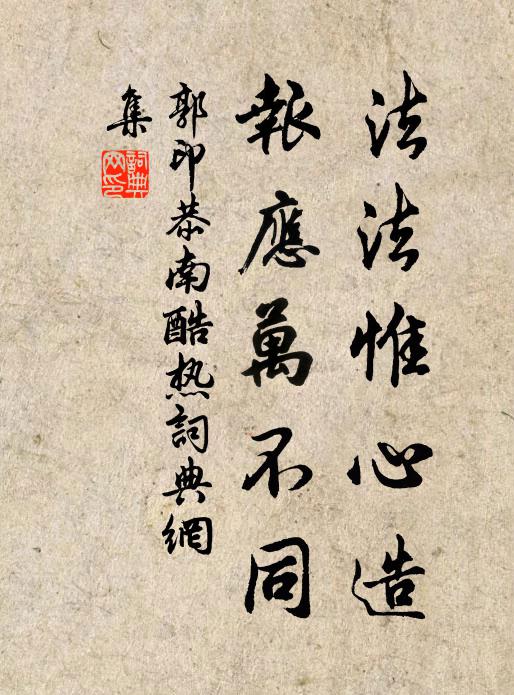 法法惟心造
報應萬不同
郭印恭南酷热詞典網
集
詞典网印